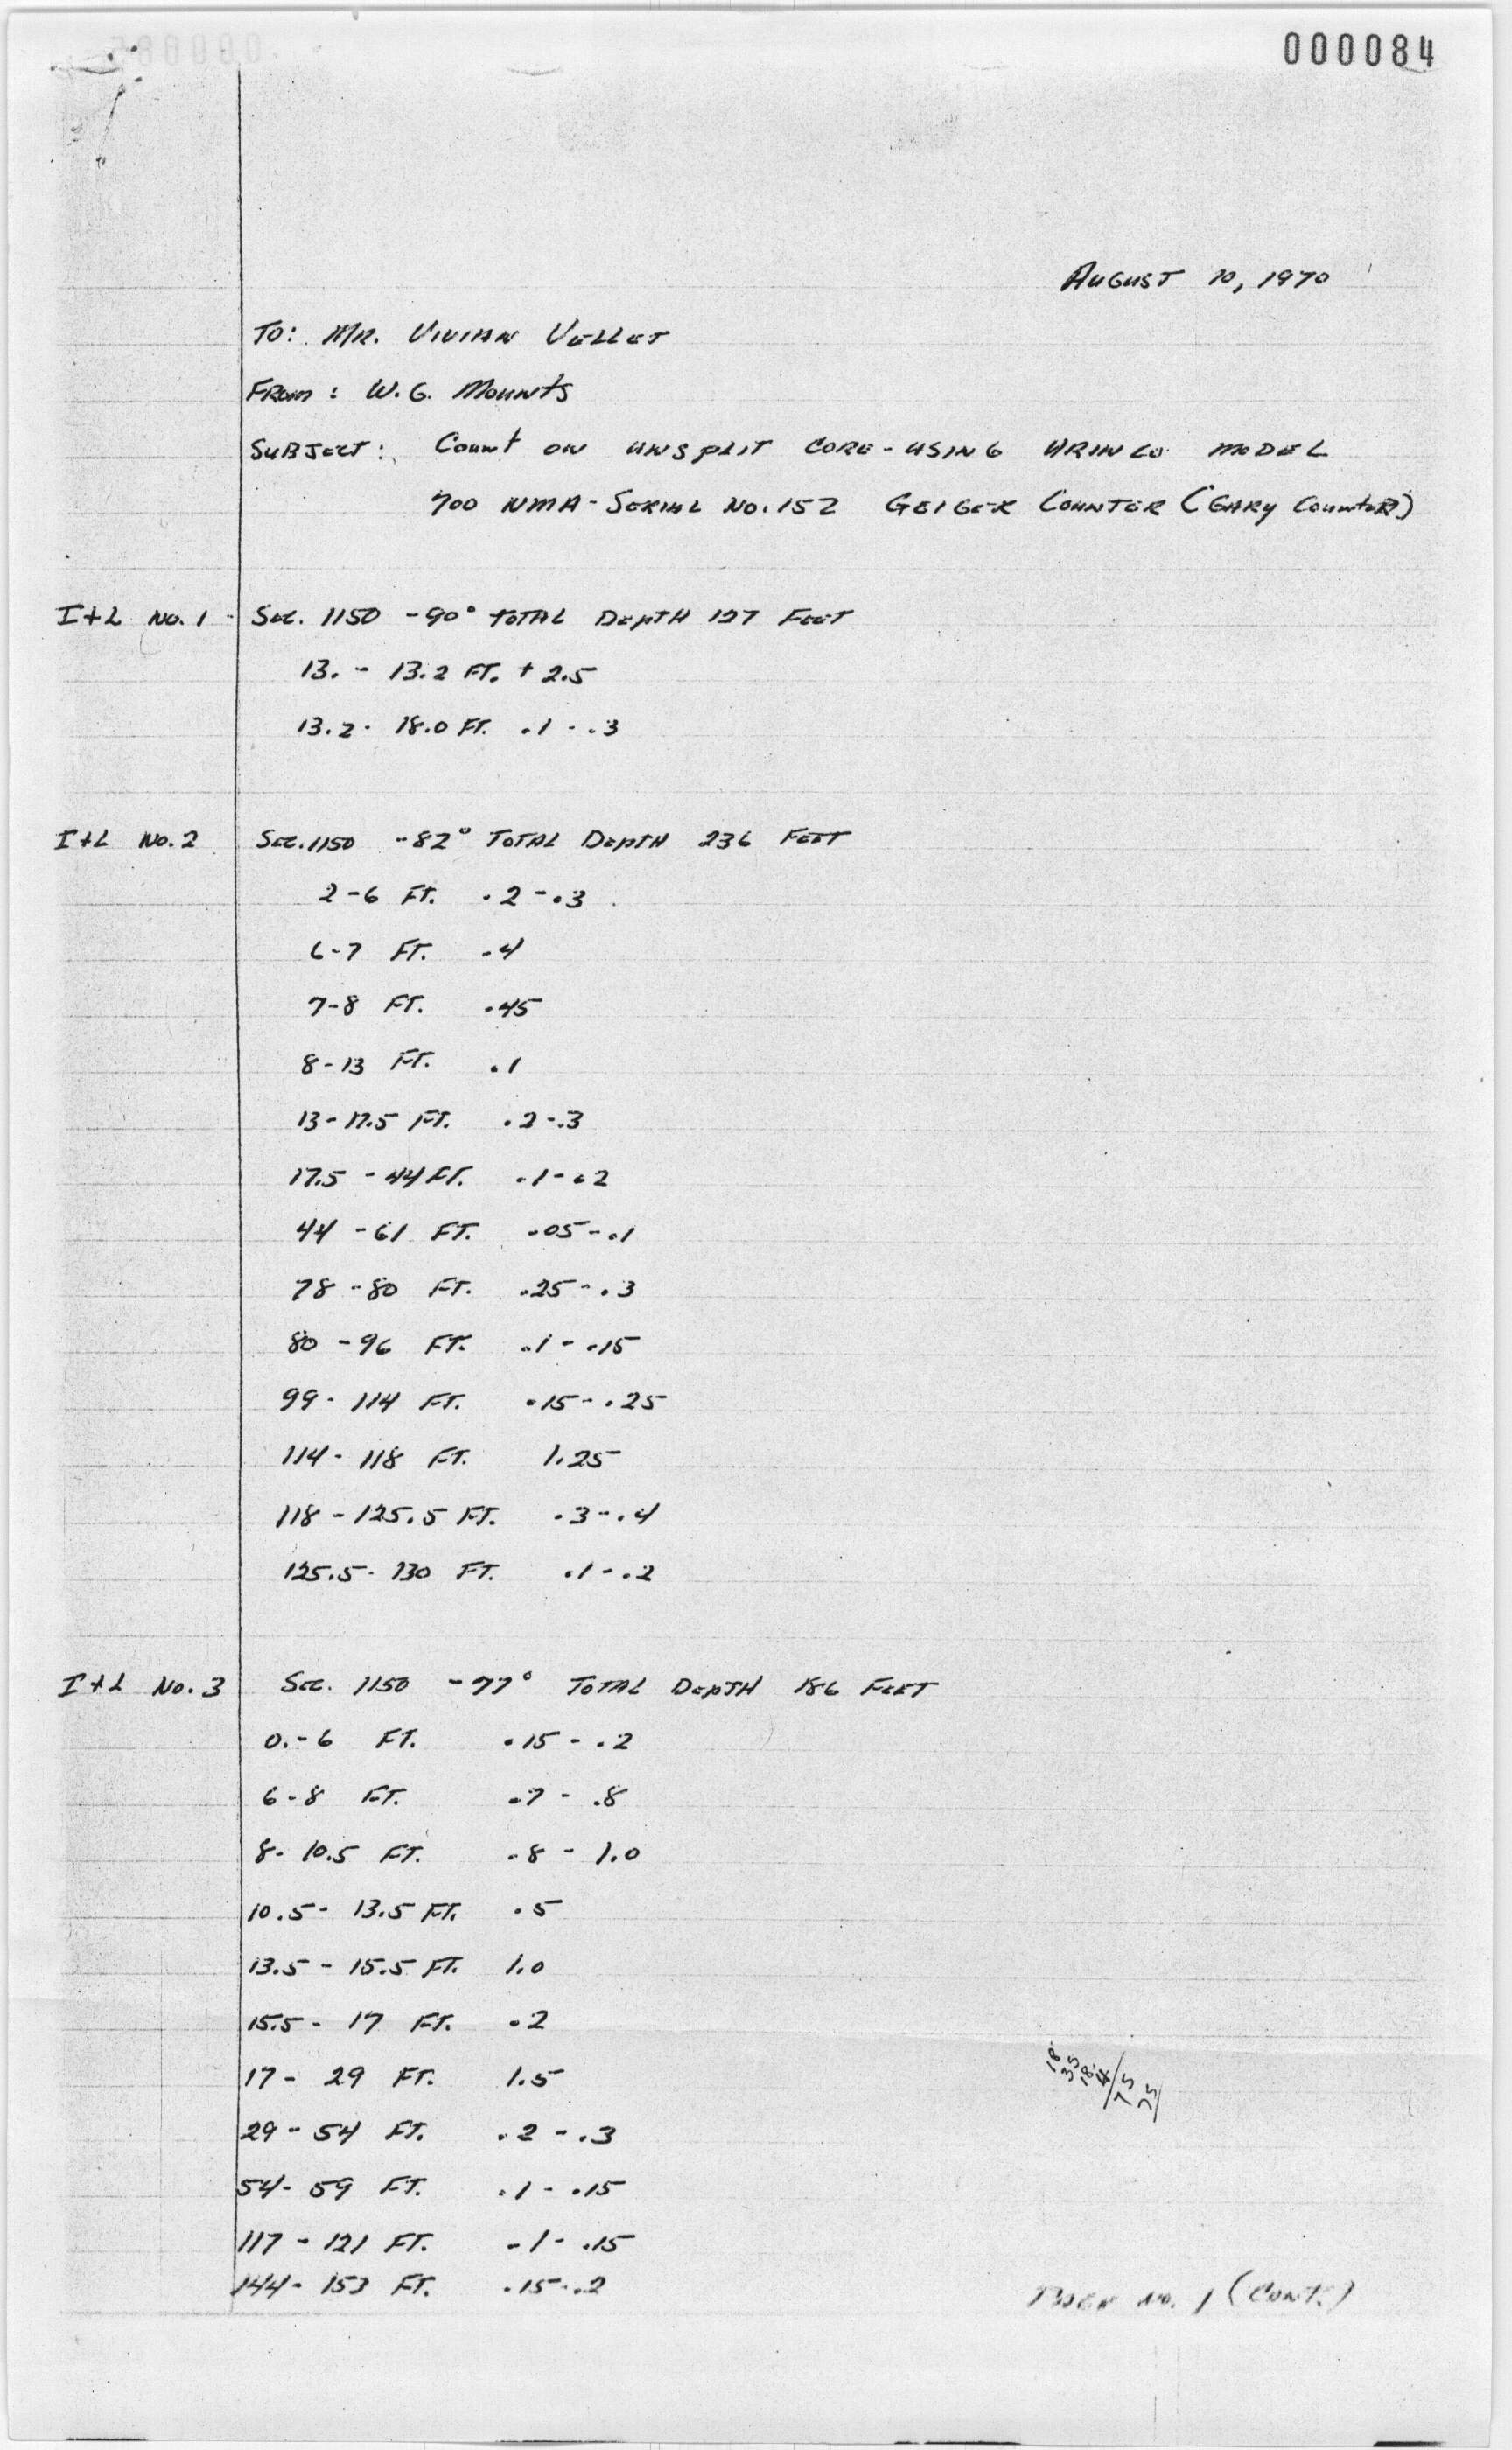 000084
AUGUST 10, 1970
TO: MR. VIVIAN VELLET
FROM: W.G. MOUNTS
SUBJECT: COUNT ON UNSPLIT CORE - USING URINCO MODEL
700 NMA - SERIAL NO. 152 GEIGER COUNTER (GARY COUNTER)
I+L NO. 1 - SEC. 1150 -90° TOTAL DEPTH 127 FEET
13. - 13.2 FT. + 2.5
13.2 - 18.0 FT. .1 - .3
I+L NO. 2 SEC. 1150 -82° TOTAL DEPTH 236 FEET
2-6 FT. .2 - .3
6-7 FT. .4
7-8 FT. .45
8-13 FT. .1
13-17.5 FT. .2-.3
17.5 - 44 FT. .1-.2
44 - 61 FT. .05-.1
78 - 80 FT. .25 - .3
80 - 96 FT. .1 - .15
99 - 114 FT. .15 - .25
114 - 118 FT. 1.25
118 - 125.5 FT. .3 - .4
125.5 - 130 FT. .1 - .2
I+L NO. 3 SEC. 1150 -77° TOTAL DEPTH 186 FEET
0.-6 FT. .15 - .2
6-8 FT. .7 - .8
8-10.5 FT. .8 - 1.0
10.5 - 13.5 FT. .5
13.5 - 15.5 FT. 1.0
15.5 - 17 FT. .2
17 - 29 FT. 1.5
29 - 54 FT. .2 - .3
54 - 59 FT. .1 - .15
117 - 121 FT. .1 - .15
144 - 153 FT. .15 - .2
NO. 1 (CONT.)